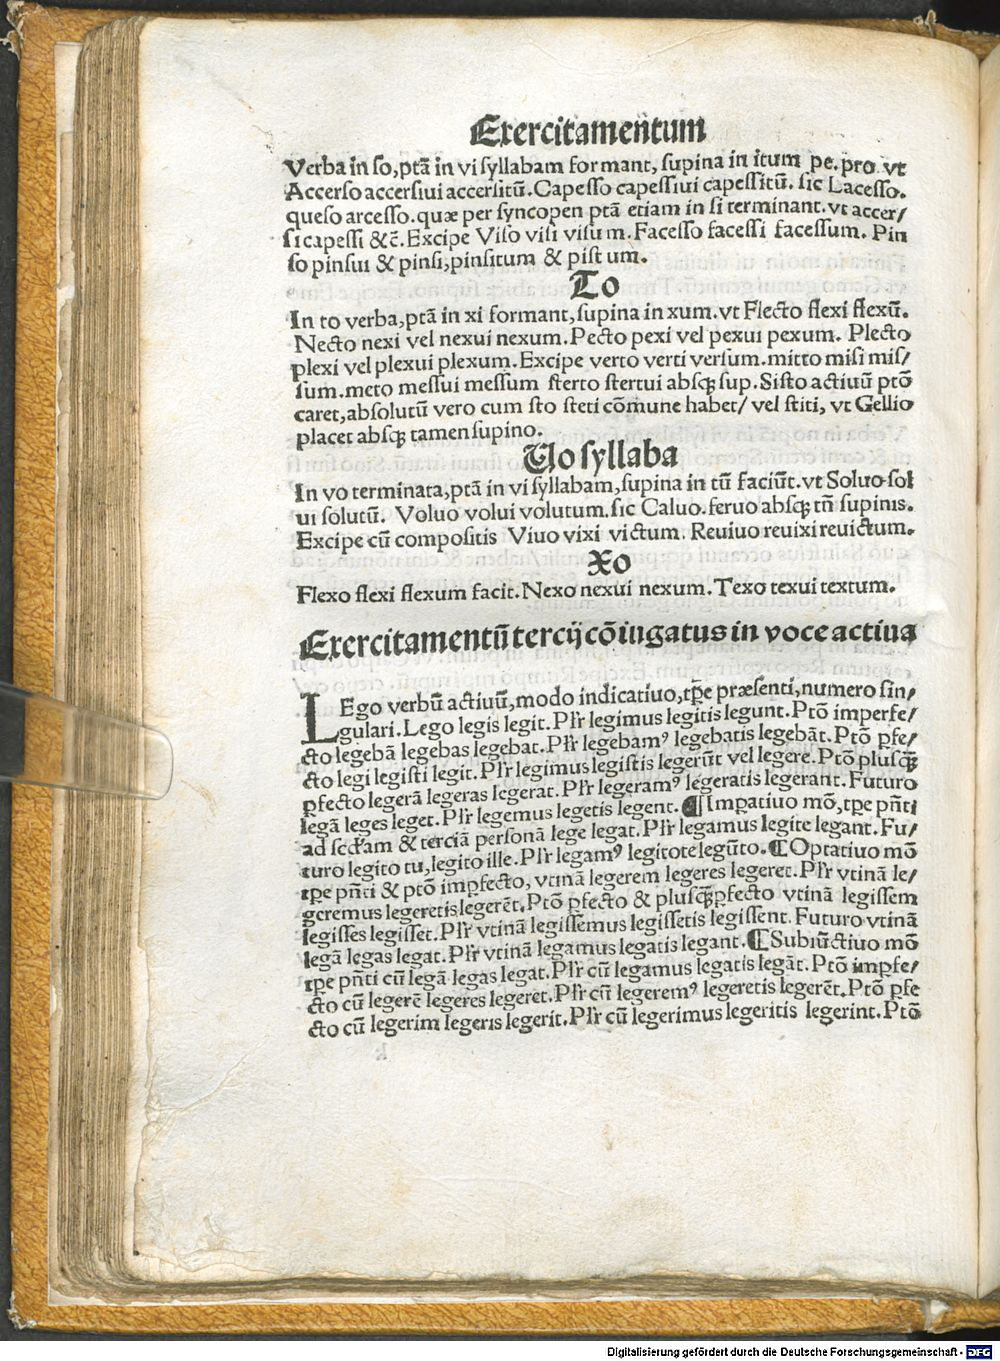 Exercitamentum
Verba in so, ptā in vi syllabam formant, supina in itum pe. pro. vt
Accerso accersiui accersitū. Capesso capessiui capessitū. sic Lacesso.
queso arcesso. quæ per syncopen ptā etiam in si terminant. vt accer/
si capessi &c̄. Excipe Viso visi visum. Facesso facessi facessum. Pin
so pinsui & pinsi, pinsitum & pistum.
To
In to verba, ptā in xi formant, supina in xum. vt Flecto flexi flexū.
Necto nexi vel nexui nexum. Pecto pexi vel pexui pexum. Plecto
plexi vel plexui plexum. Excipe verto verti versum. mitto misi mis/
sum. meto messui messum sterto stertui absqꝫ sup. Sisto actiuū ptō
caret, absolutū vero cum sto steti cōmune habet/ vel stiti, vt Gellio
placet absqꝫ tamen supino.
Uo syllaba
In vo terminata, ptā in vi syllabam, supina in tū faciūt. vt Soluo sol
ui solutū. Voluo volui volutum. sic Caluo. feruo absqꝫ tn̄ supinis.
Excipe cū compositis Viuo vixi victum. Reuiuo reuixi reuictum.
Xo
Flexo flexi flexum facit. Nexo nexui nexum. Texo texui textum.
Exercitamentū tercij cōiugatus in voce actiua
LEgo verbū actiuū, modo indicatiuo, tp̄e præsenti, numero sin/
gulari. Lego legis legit. Plr̄ legimus legitis legunt. Ptō imperfe/
cto legebā legebas legebat. Plr̄ legebamꝰ legebatis legebāt. Ptō ꝑfe/
cto legi legisti legit. Plr̄ legimus legistis legerūt vel legere. Ptō plusqꝫ̄
ꝑfecto legerā legeras legerat. Plr̄ legeramꝰ legeratis legerant. Futuro
legā leges leget. Plr̄ legemus legetis legent. ¶ Imꝑatiuo mō, tp̄e pn̄ti
ad scd̄am & terciā personā lege legat. Plr̄ legamus legite legant. Fu/
turo legito tu, legito ille. Plr̄ legamꝰ legitote legūto. ¶ Optatiuo mō
tp̄e pn̄ti & ptō imꝑfecto, vtinā legerem legeres legeret. Plr̄ vtinā le/
geremus legeretis legerēt. Ptō ꝑfecto & plusqꝫ̄ꝑfecto vtinā legissem
legisses legisset. Plr̄ vtinā legissemus legissetis legissent. Futuro vtinā
legā legas legat. Plr̄ vtinā legamus legatis legant. ¶ Subiūctiuo mō
tp̄e pn̄ti cū legā legas legat. Plr̄ cū legamus legatis legāt. Ptō imꝑfe/
cto cū legerē legeres legeret. Plr̄ cū legeremꝰ legeretis legerēt. Ptō ꝑfe
cto cū legerim legeris legerit. Plr̄ cū legerimus legeritis legerint. Ptō
Digitalisierung gefördert durch die Deutsche Forschungsgemeinschaft - DFG